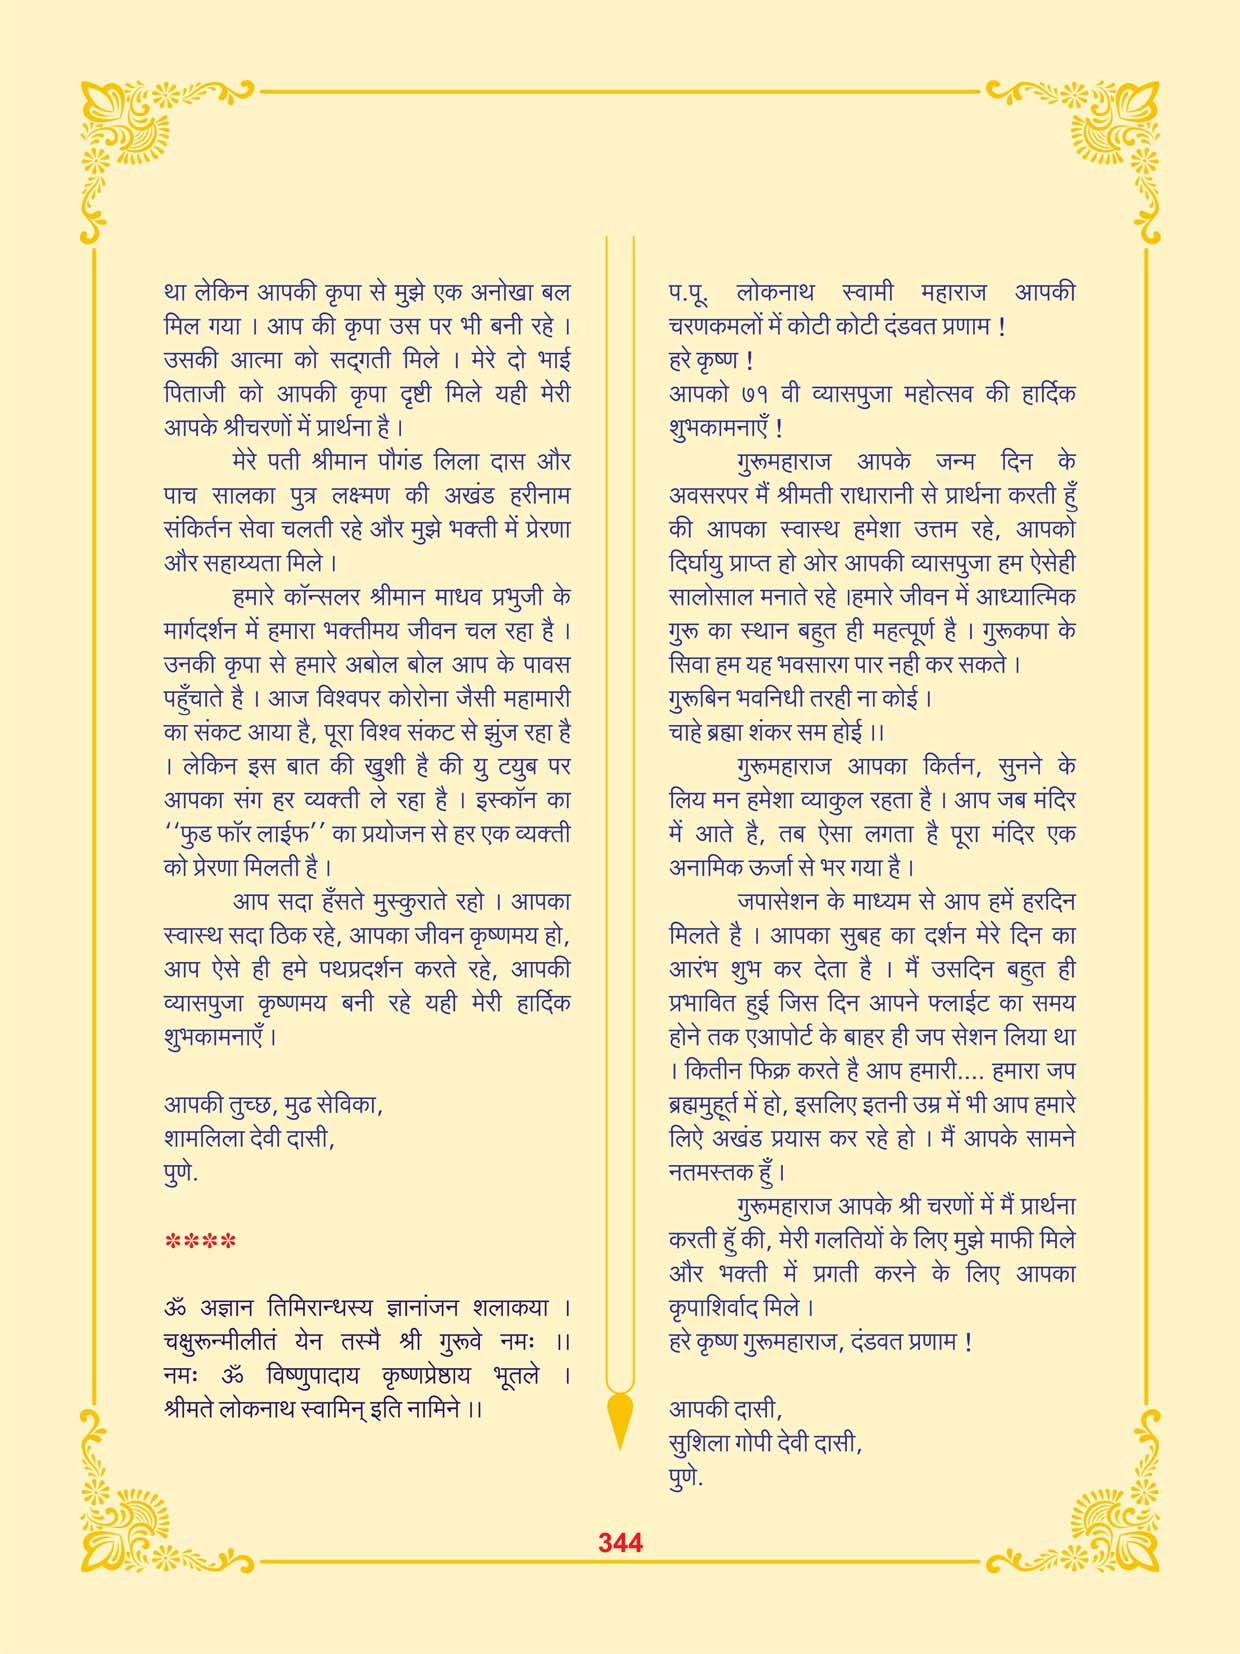 था लेकिन आपकी कृपा से मुझे एक अनोखा बल
मिल गया । आप की कृपा उस पर भी बनी रहे ।
उसकी आत्मा को सद्‌गती मिले । मेरे दो भाई
पिताजी को आपकी कृपा दृष्टी मिले यही मेरी
आपके श्रीचरणों में प्रार्थना है ।
मेरे पती श्रीमान पौगंड लिला दास और
पाच सालका पुत्र लक्ष्मण की अखंड हरीनाम
संकिर्तन सेवा चलती रहे और मुझे भक्ती में प्रेरणा
और सहाय्यता मिले ।
हमारे कॉन्सलर श्रीमान माधव प्रभुजी के
मार्गदर्शन में हमारा भक्तीमय जीवन चल रहा है ।
उनकी कृपा से हमारे अबोल बोल आप के पावस
पहुँचाते है । आज विश्वपर कोरोना जैसी महामारी
का संकट आया है, पूरा विश्व संकट से झुंज रहा है
। लेकिन इस बात की खुशी है की यु टयुब पर
आपका संग हर व्यक्ती ले रहा है । इस्कॉन का
‘‘फुड फॉर लाईफ’’ का प्रयोजन से हर एक व्यक्ती
को प्रेरणा मिलती है ।
आप सदा हँसते मुस्कुराते रहो । आपका
स्वास्थ सदा ठिक रहे, आपका जीवन कृष्णमय हो,
आप ऐसे ही हमे पथप्रदर्शन करते रहे, आपकी
व्यासपुजा कृष्णमय बनी रहे यही मेरी हार्दिक
शुभकामनाएँ ।
आपकी तुच्छ, मुढ सेविका,
शामलिला देवी दासी,
पुणे.
****
ॐ अज्ञान तिमिरान्धस्य ज्ञानांजन शलाकया ।
चक्षुरून्मीलीतं येन तस्मै श्री गुरूवे नमः ।।
नमः ॐ विष्णुपादाय कृष्णप्रेष्ठाय भूतले ।
श्रीमते लोकनाथ स्वामिन् इति नामिने ।।
प.पू. लोकनाथ स्वामी महाराज आपकी
चरणकमलों में कोटी कोटी दंडवत प्रणाम !
हरे कृष्ण !
आपको ७१ वी व्यासपुजा महोत्सव की हार्दिक
शुभकामनाएँ !
गुरूमहाराज आपके जन्म दिन के
अवसरपर मैं श्रीमती राधारानी से प्रार्थना करती हुँ
की आपका स्वास्थ हमेशा उत्तम रहे, आपको
दिर्घायु प्राप्त हो ओर आपकी व्यासपुजा हम ऐसेही
सालोसाल मनाते रहे ।हमारे जीवन में आध्यात्मिक
गुरू का स्थान बहुत ही महत्पूर्ण है । गुरूकपा के
सिवा हम यह भवसारग पार नही कर सकते ।
गुरूबिन भवनिधी तरही ना कोई ।
चाहे ब्रह्मा शंकर सम होई ।।
गुरूमहाराज आपका किर्तन, सुनने के
लिय मन हमेशा व्याकुल रहता है । आप जब मंदिर
में आते है, तब ऐसा लगता है पूरा मंदिर एक
अनामिक ऊर्जा से भर गया है ।
जपासेशन के माध्यम से आप हमें हरदिन
मिलते है । आपका सुबह का दर्शन मेरे दिन का
आरंभ शुभ कर देता है । मैं उसदिन बहुत ही
प्रभावित हुई जिस दिन आपने फ्लाईट का समय
होने तक एआपोर्ट के बाहर ही जप सेशन लिया था
। कितीन फिक्र करते है आप हमारी.... हमारा जप
ब्रह्ममुहूर्त में हो, इसलिए इतनी उम्र में भी आप हमारे
लिऐ अखंड प्रयास कर रहे हो । मैं आपके सामने
नतमस्तक हुँ ।
गुरूमहाराज आपके श्री चरणों में मैं प्रार्थना
करती हुॅ की, मेरी गलतियों के लिए मुझे माफी मिले
और भक्ती में प्रगती करने के लिए आपका
कृपाशिर्वाद मिले ।
हरे कृष्ण गुरूमहाराज, दंडवत प्रणाम !
आपकी दासी,
सुशिला गोपी देवी दासी,
पुणे.
344